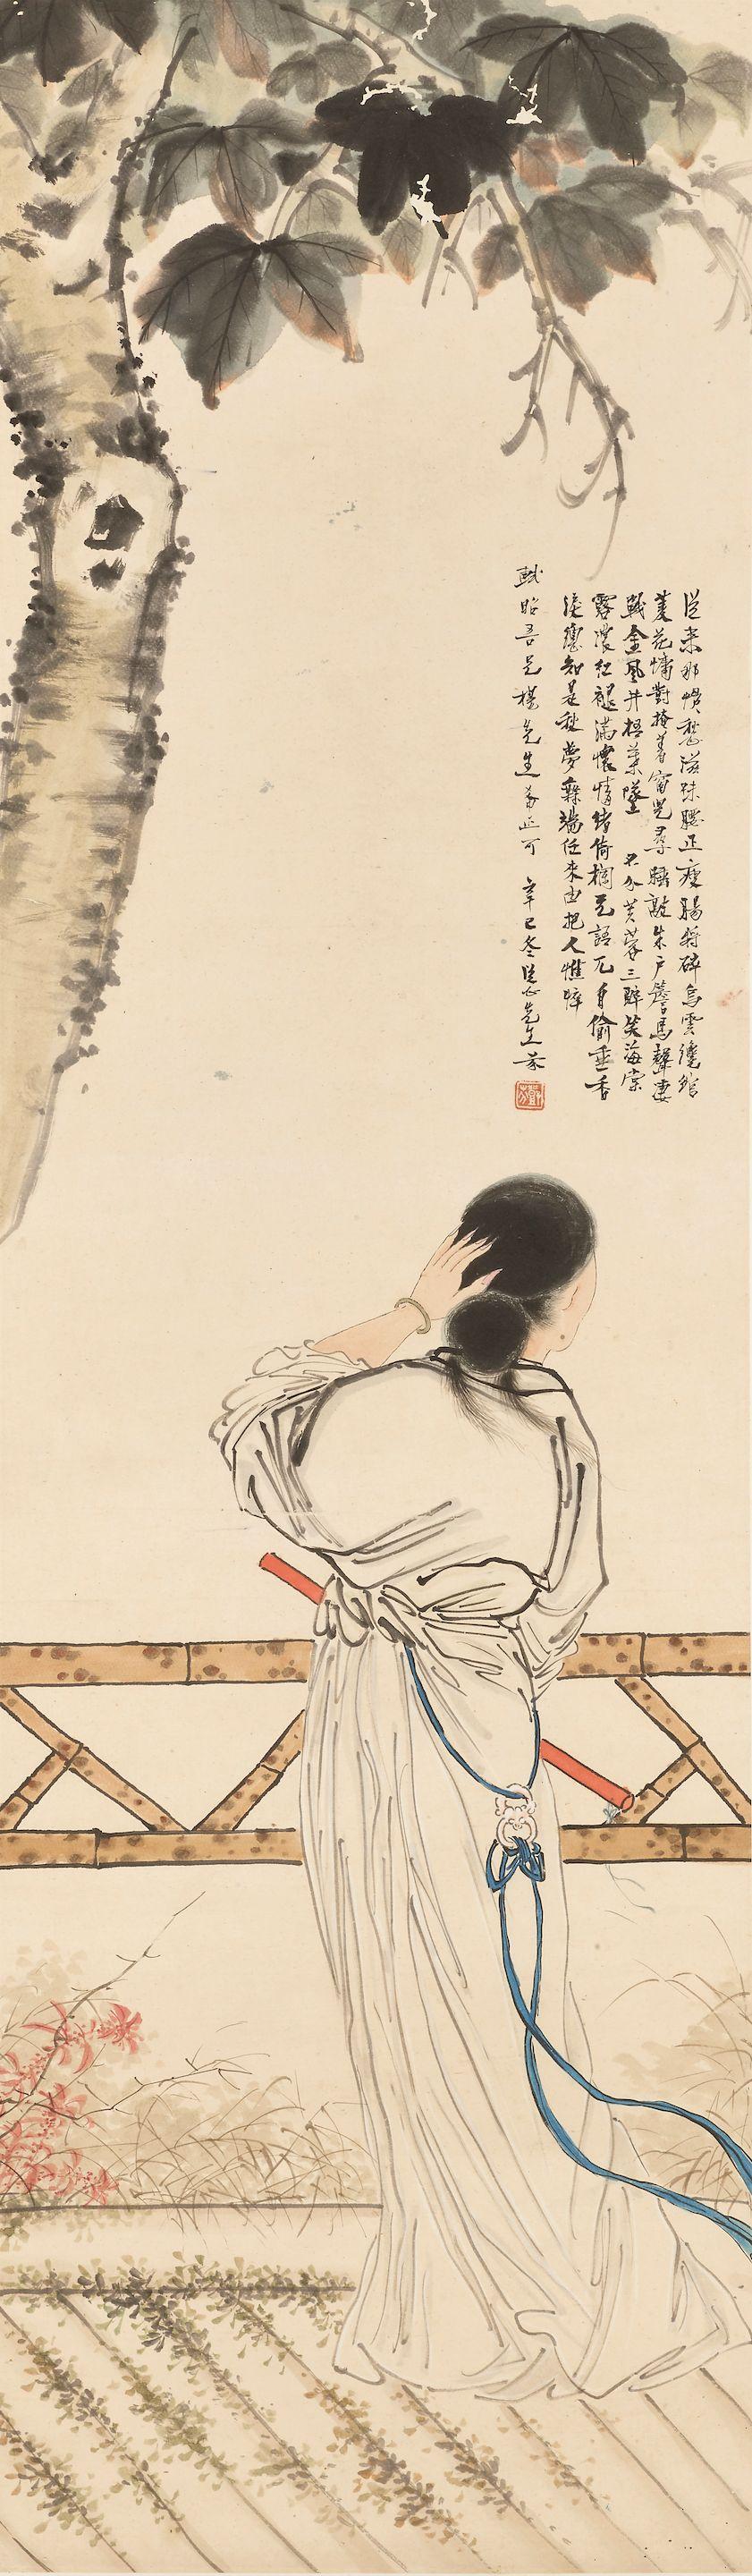 從來那慣愁滋味腰正瘦腸將碎烏雲纔綰
菱花慵對掩著窗兒尋睡敲朱戶簷馬聲淒
戰金風井梧葉墜 不分芙蓉三醉笑海棠
露濃紅褪滿懷情緒倚欄無語兀自偷垂香
淚應知是秋夢無端任來由把人憔悴
昭吾兄樣先生 正可 辛巳冬 先生